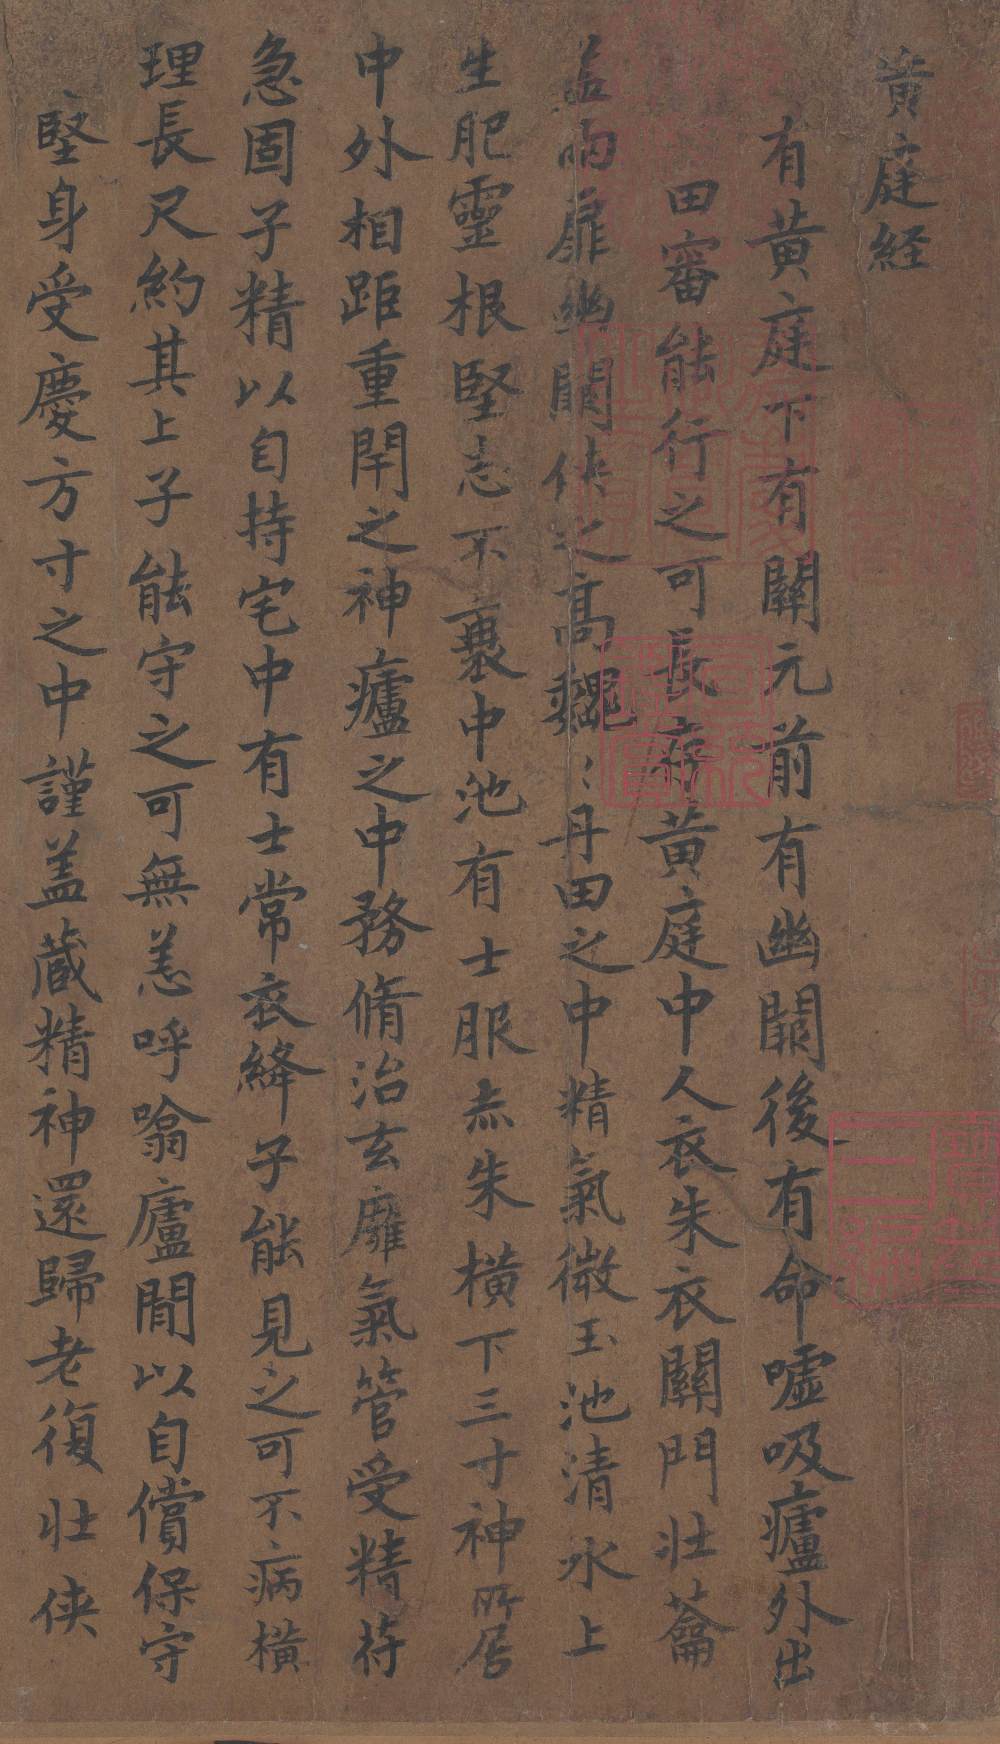 黃庭経
有黃庭下有關元前有幽闕後有命嘘吸廬外出
田審能行之可長存黃庭中人衣朱衣關門壯蘥
盖兩扉幽闕俠之高巍〻丹田之中精氣微玉池清水上
生肥靈根堅志不裏中池有士服赤朱橫下三寸神所居
中外相距重閇之神廬之中務脩治玄癰氣管受精苻
急固子精以自持宅中有士常衣絳子能見之可不病橫
理長尺約其上子能守之可無恙呼噏廬間以自償保守
堅身受慶方寸之中謹盖蔵精神還歸老復壯俠